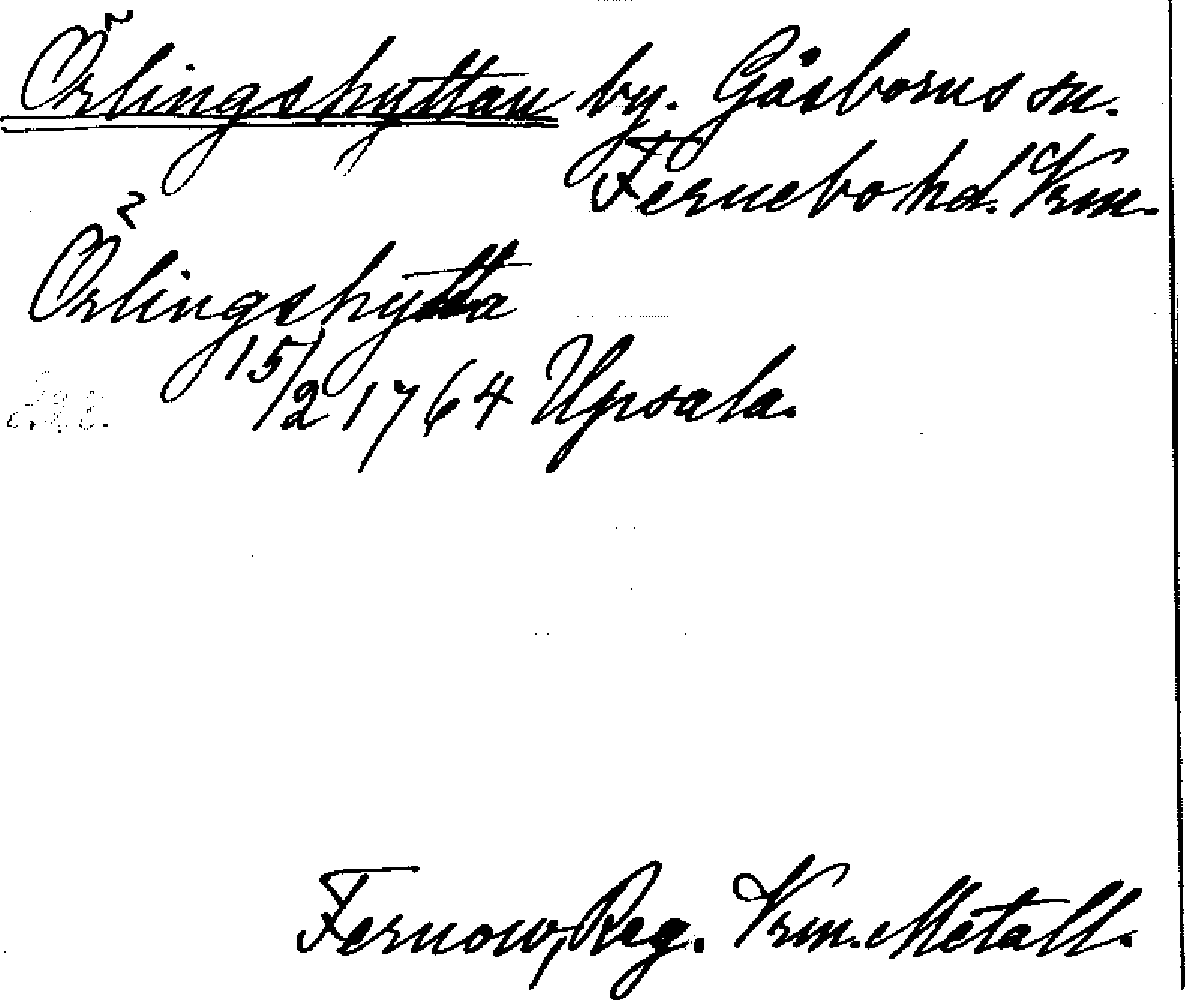 Örlingshyttan by. Gåsborns sn.
Fernebo hd. Vrm.
Örlingshytta
15/2 1764 Upsala.
Fernow, Reg. Vrm. Metall.